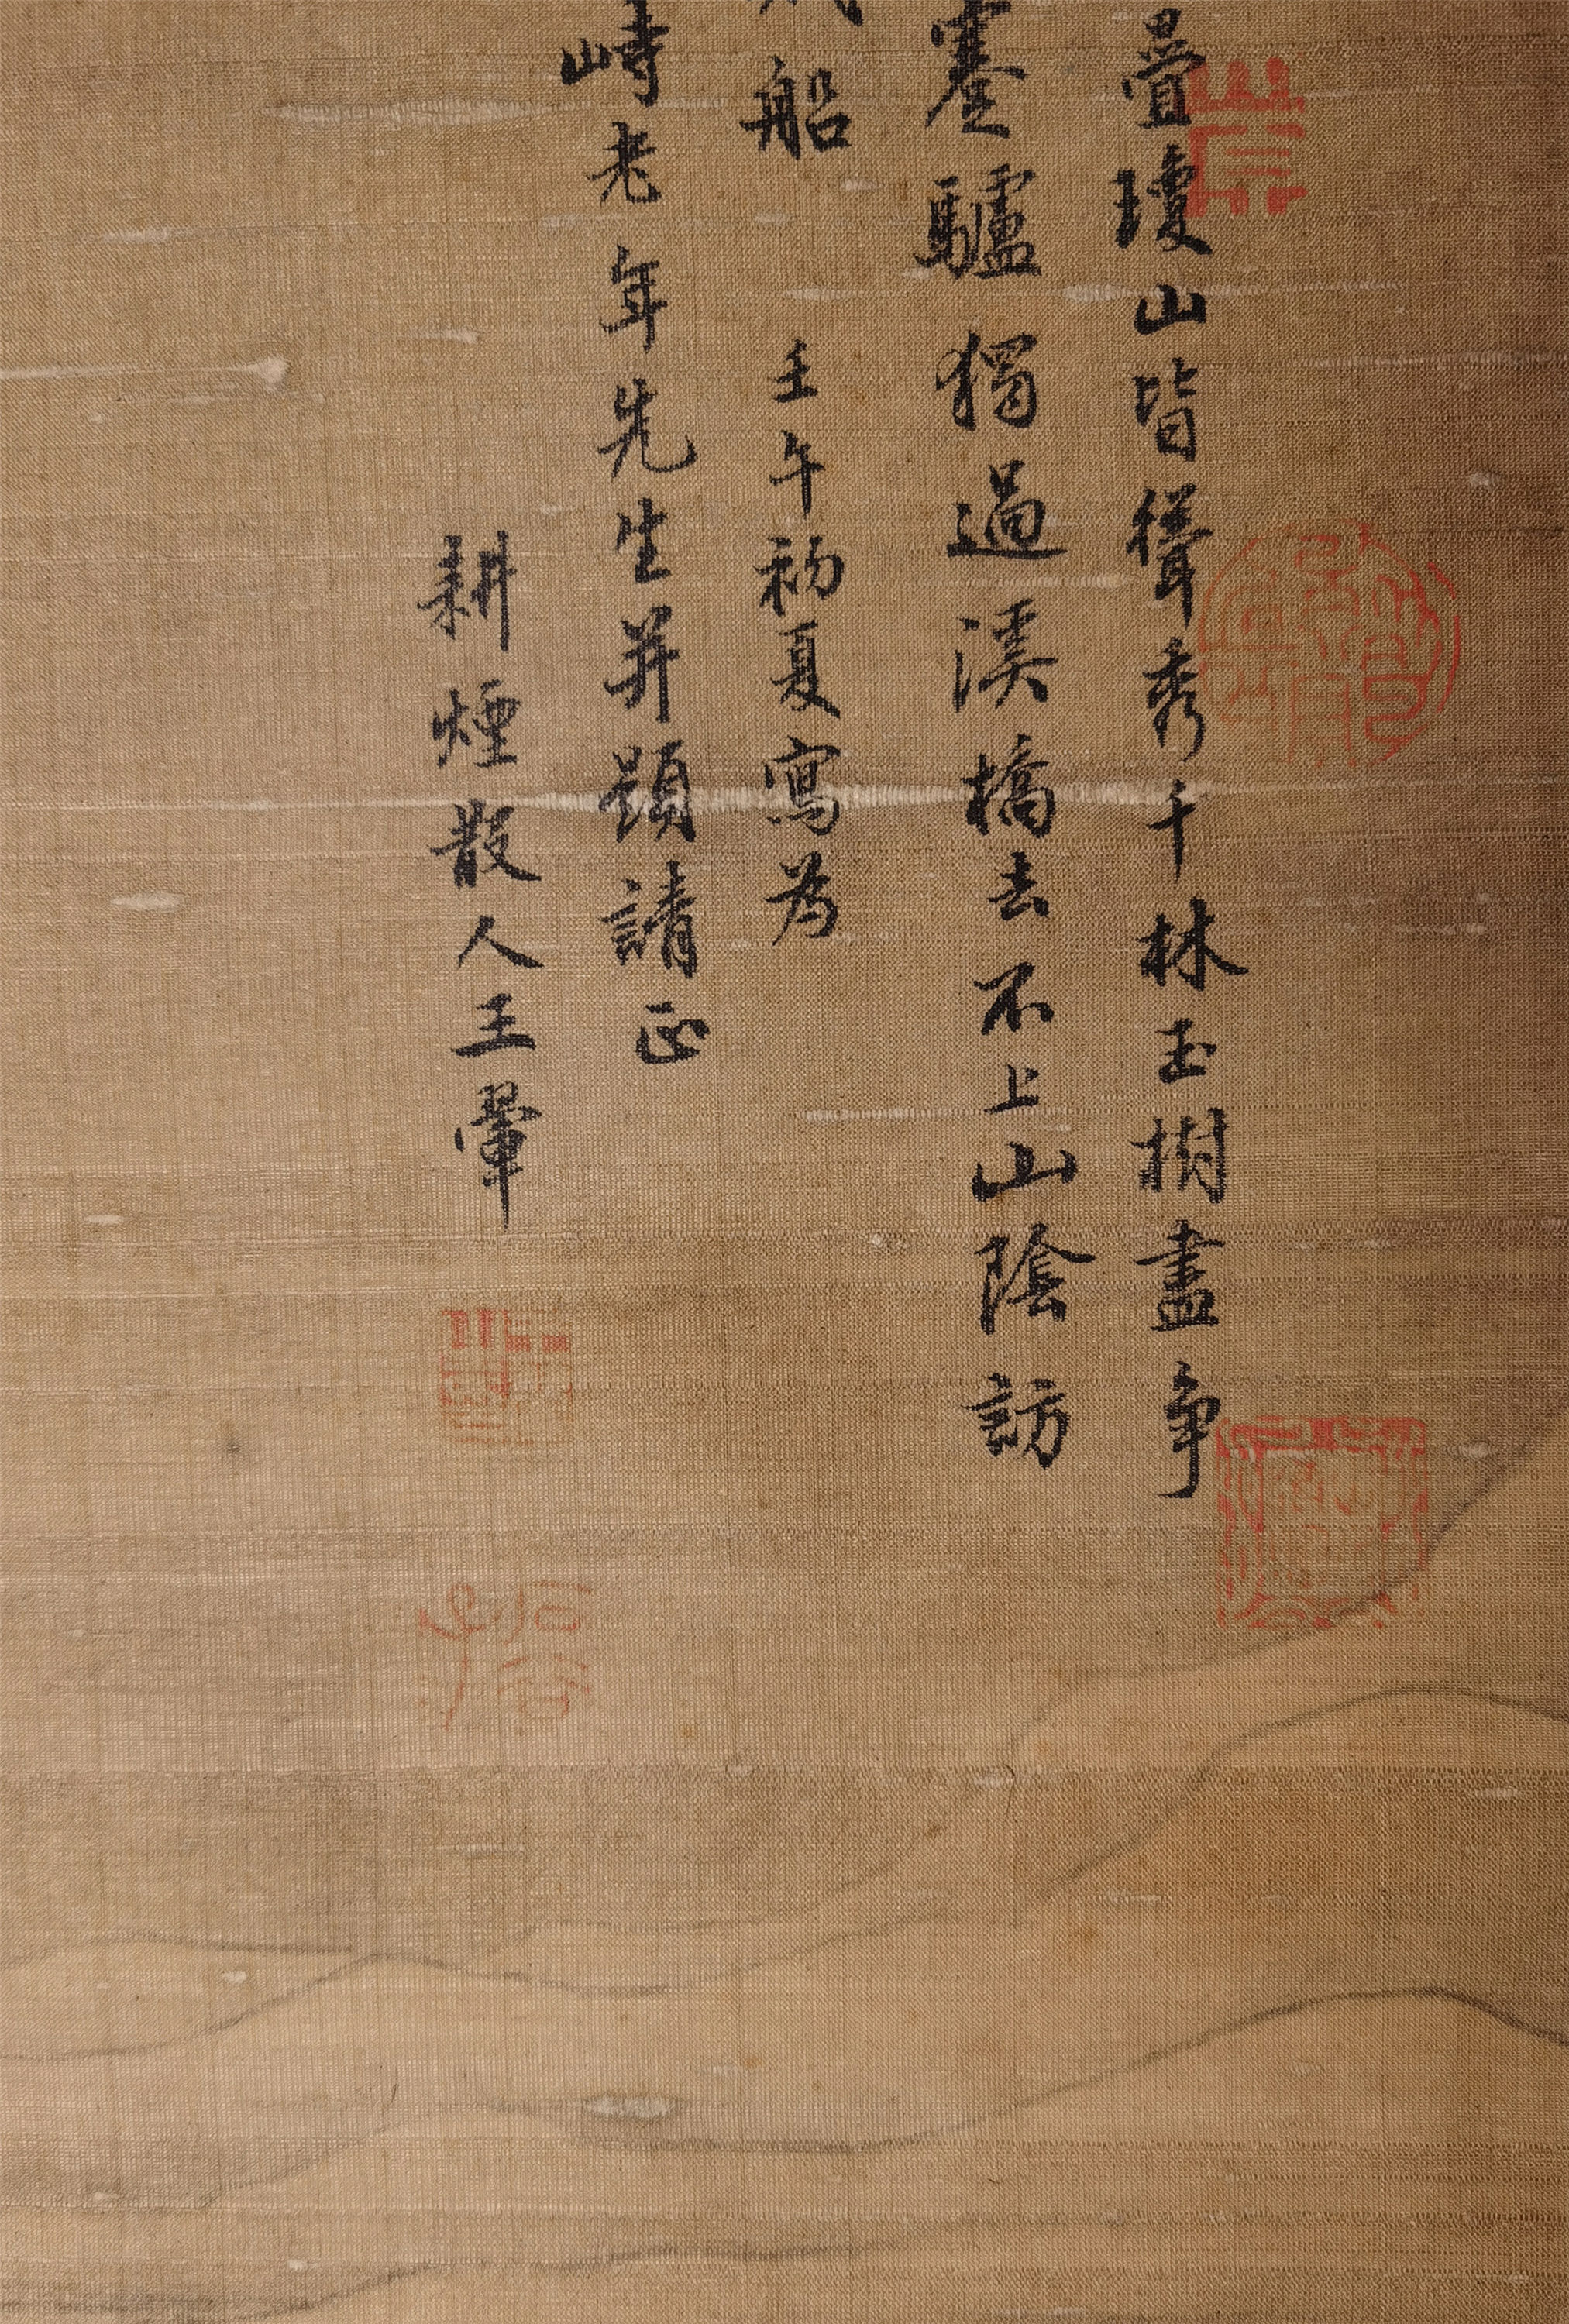 疊瓊山皆聳秀千林玉樹盡爭
蹇驢獨過溪橋去不上山陰訪
船 壬午初夏寫為
峙老年先生并題請正
耕煙散人王翬